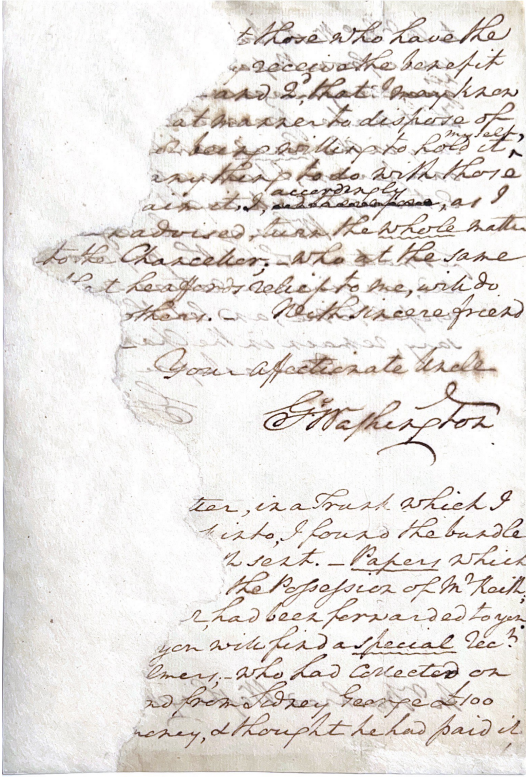 t those who have the
y receive the benefit
and 2d, that I may know
at manner to dispose of
being willing to hold it myself,
any thing to do with those
aim it. I, accordingly, as I
n advised, turn the whole matter
to the Chancellor; - who at the same
that he affords relief to me, will do
others. - With sincere friend
Your affectionate Uncle
Go Washington
tter, in a Trunk which I
into, I found the bundle
n sent. - Papers which
the Possession of Mr Keith,
r, had been forwarded to you.
you will find a special rect
lmers, - who had collected on
nd from Sidney George £100
oney, & thought he had paid it